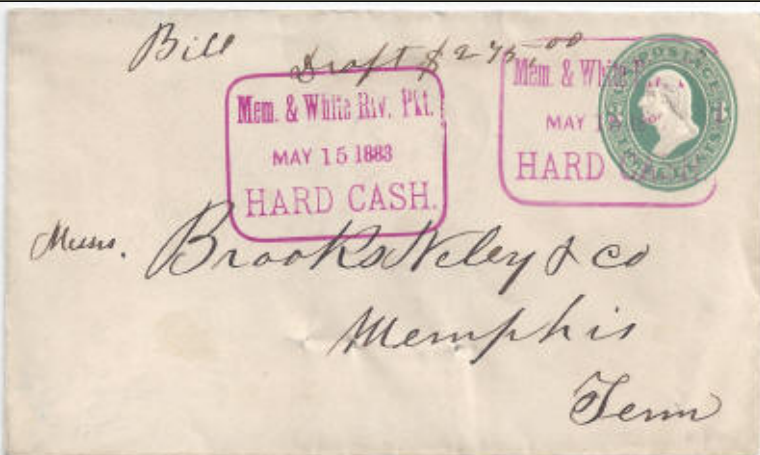 Bill
Draft $275.00
Mem. & White Riv. Pkt.
MAY 15 1883
HARD CASH.
Mem. & White
MAY 1
HARD
POSTAGE
THREE CENTS
Messrs. Brooks Neely & Co
Memphis
Tenn